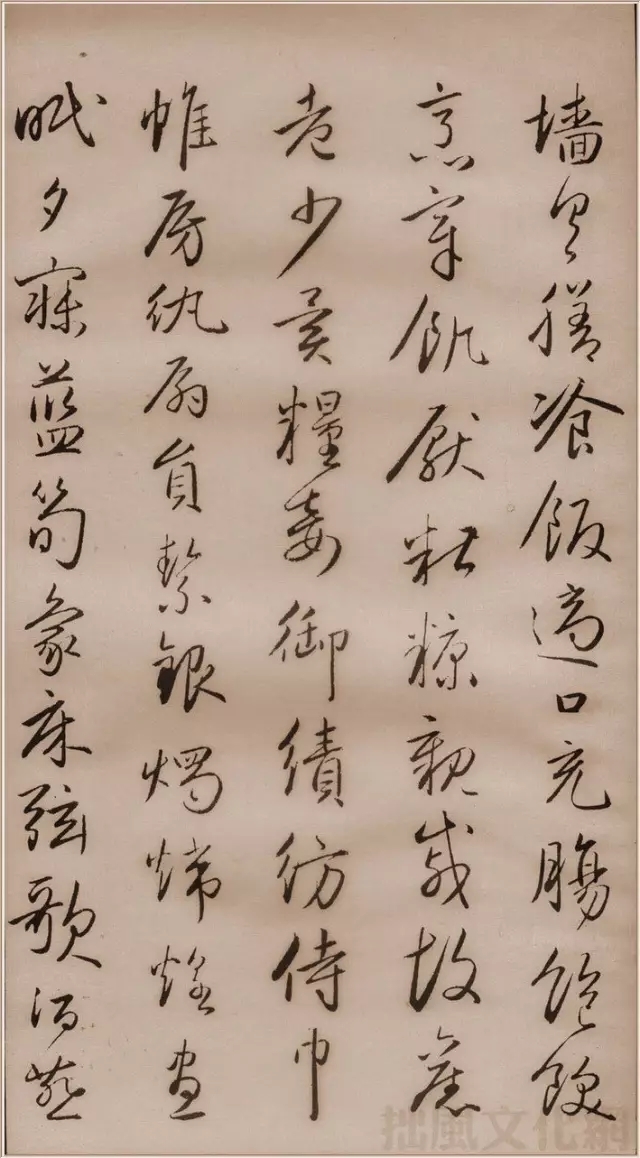 墙具膳飡飯適口充腸飽飫
烹宰飢厭糟糠親戚故舊
老少異糧妾御績紡侍巾
帷房紈扇員絜銀燭煒煌晝
眠夕寐藍筍象床弦歌酒燕
拙風文化網